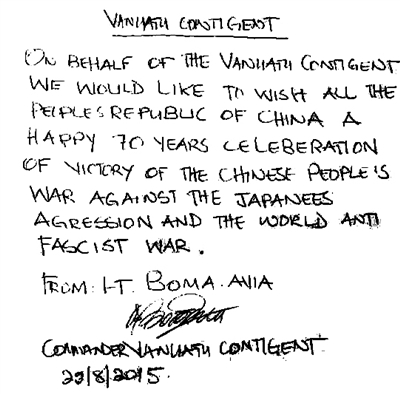 VANUATU CONTIGENT
ON BEHALF OF THE VANUATU CONTIGENT
WE WOULD LIKE TO WISH ALL THE
PEOPLES REPUBLIC OF CHINA A
HAPPY 70 YEARS CELEBERATION
OF VICTORY OF THE CHINESE PEOPLE'S
WAR AGAINST THE JAPANEES
AGRESSION AND THE WORLD ANTI
FASCIST WAR.
FROM: LT. BOMA AVIA
COMMANDER VANUATU CONTIGENT
/8/2015.